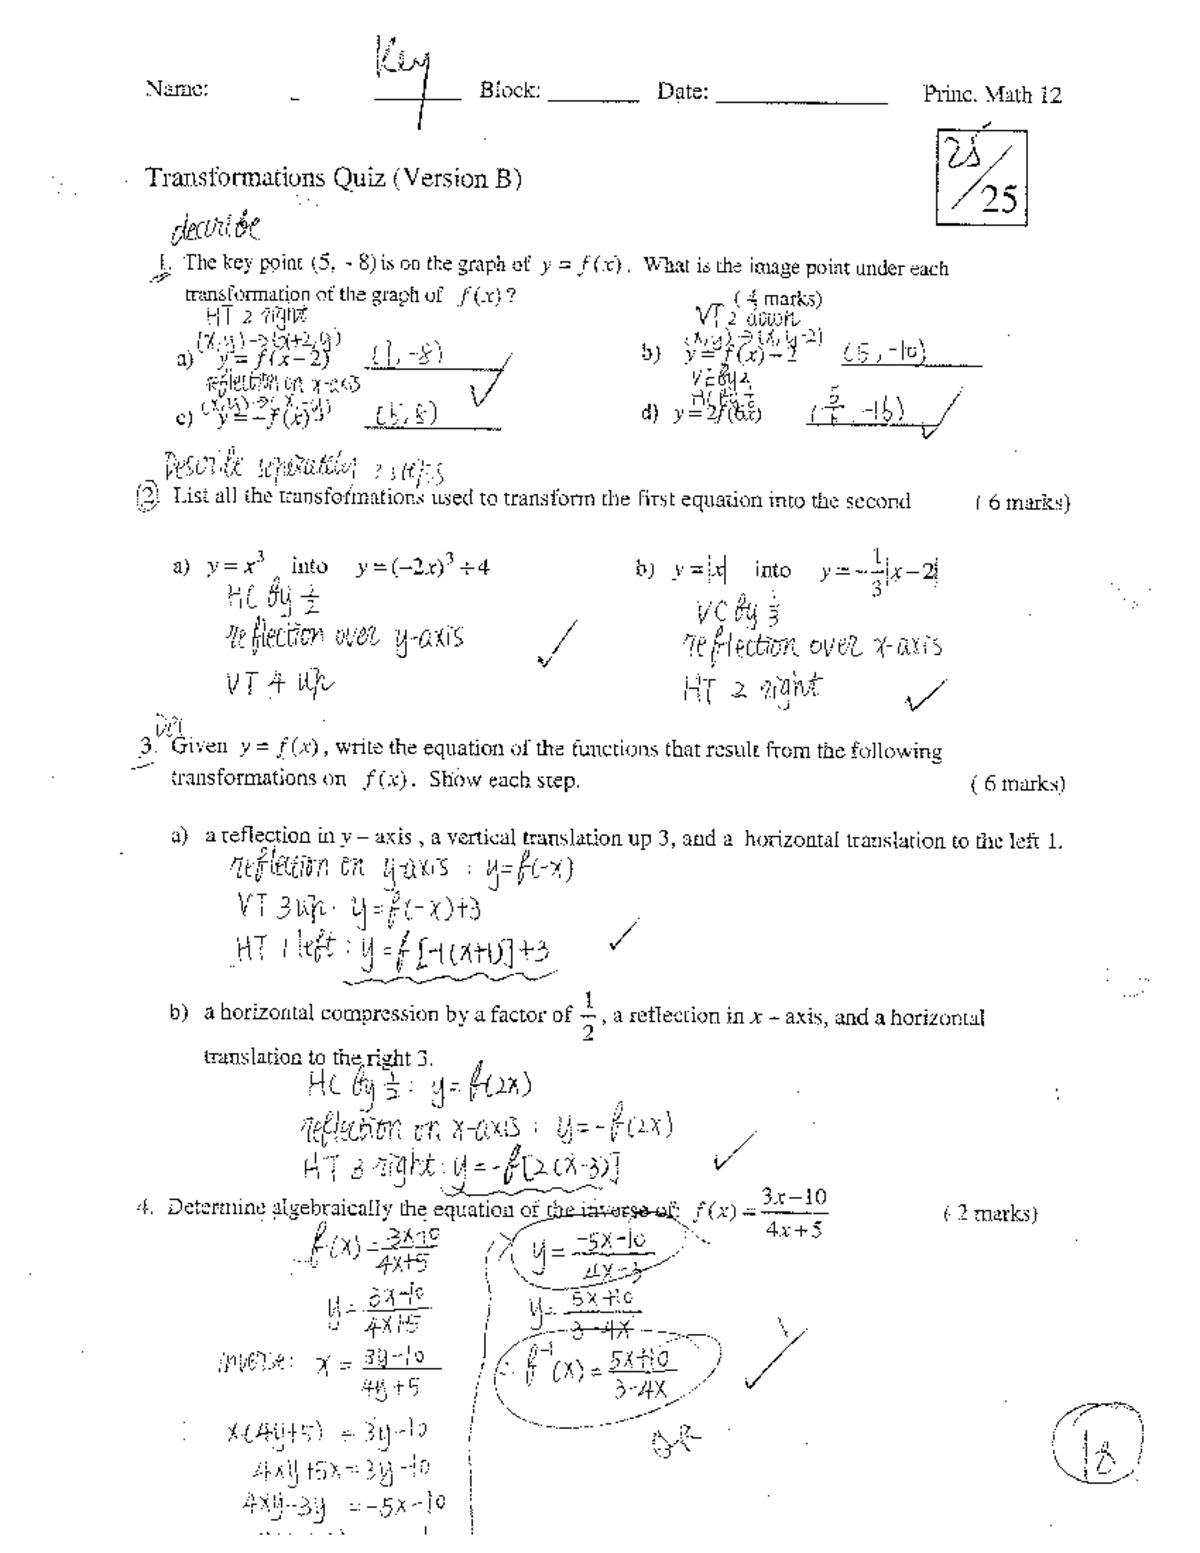 Key
Name: Block: Date: Princ. Math 12
25/25
Transformations Quiz (Version B)
decuribe
1. The key point (5, -8) is on the graph of y = f(x). What is the image point under each
transformation of the graph of f(x)? (4 marks)
HT 2 right VT 2 down
(x,y)→(x+2,y) (x,y)→(x,y-2)
a) y = f(x-2) (7,-8) b) y = f(x)-2 (5,-10)
reflection on x-axis VE by 2
(x,y)→(x,-y) HC by 1/6
c) y = -f(x) (5,8) d) y = 2f(6x) (5/6, -16)
Describe separately 3 steps
(2) List all the transformations used to transform the first equation into the second (6 marks)
a) y = x³ into y = (-2x)³ + 4 b) y = |x| into y = -1/3|x-2|
HC by 1/2 VC by 1/3
reflection over y-axis reflection over x-axis
VT 4 up HT 2 right
3. Given y = f(x), write the equation of the functions that result from the following
transformations on f(x). Show each step. (6 marks)
a) a reflection in y – axis, a vertical translation up 3, and a horizontal translation to the left 1.
reflection on y-axis : y=f(-x)
VT 3 up. y=f(-x)+3
HT 1 left : y=f[-1(x+1)]+3
b) a horizontal compression by a factor of 1/2, a reflection in x – axis, and a horizontal
translation to the right 3.
HC by 1/2 : y=f(2x)
reflection on x-axis : y=-f(2x)
HT 3 right : y=-f[2(x-3)]
4. Determine algebraically the equation of the inverse of: f(x) = 3x-10/4x+5 (2 marks)
f(x) = 3x-10/4x+5 y = -5x-10/4x-3
y = 3x-10/4x+5 y = 5x+10/3-4x
inverse: x = 3y-10/4y+5 ∴ f⁻¹(x) = 5x+10/3-4x
x(4y+5) = 3y-10 OR
4xy+5x=3y-10 18
4xy-3y = -5x-10